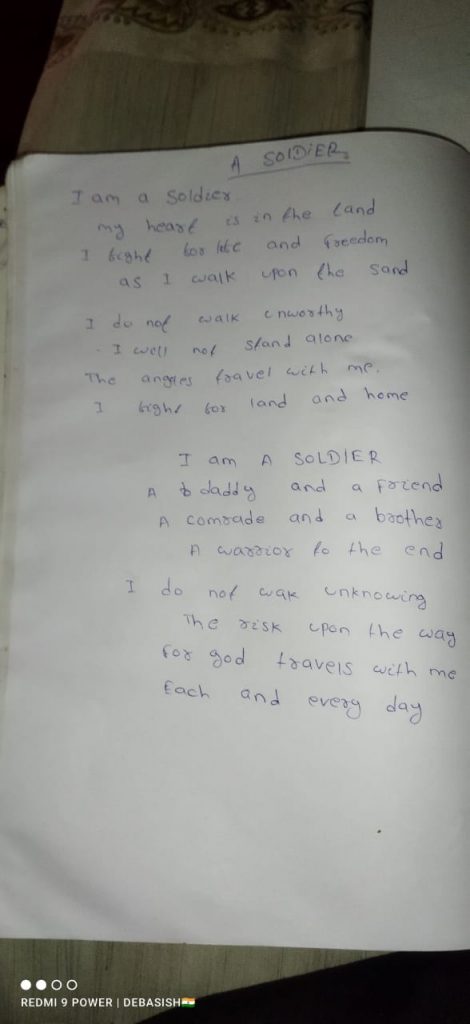 A SOLDIER
I am a Soldier
my heart is in the land
I fight for life and freedom
as I walk upon the sand
I do not walk unworthy
I will not stand alone
The angles travel with me.
I fight for land and home
I am A SOLDIER
A daddy and a friend
A comrade and a brother
A warrior to the end
I do not wak unknowing
The risk upon the way
For god travels with me
Each and every day
REDMI 9 POWER | DEBASISH🇮🇳